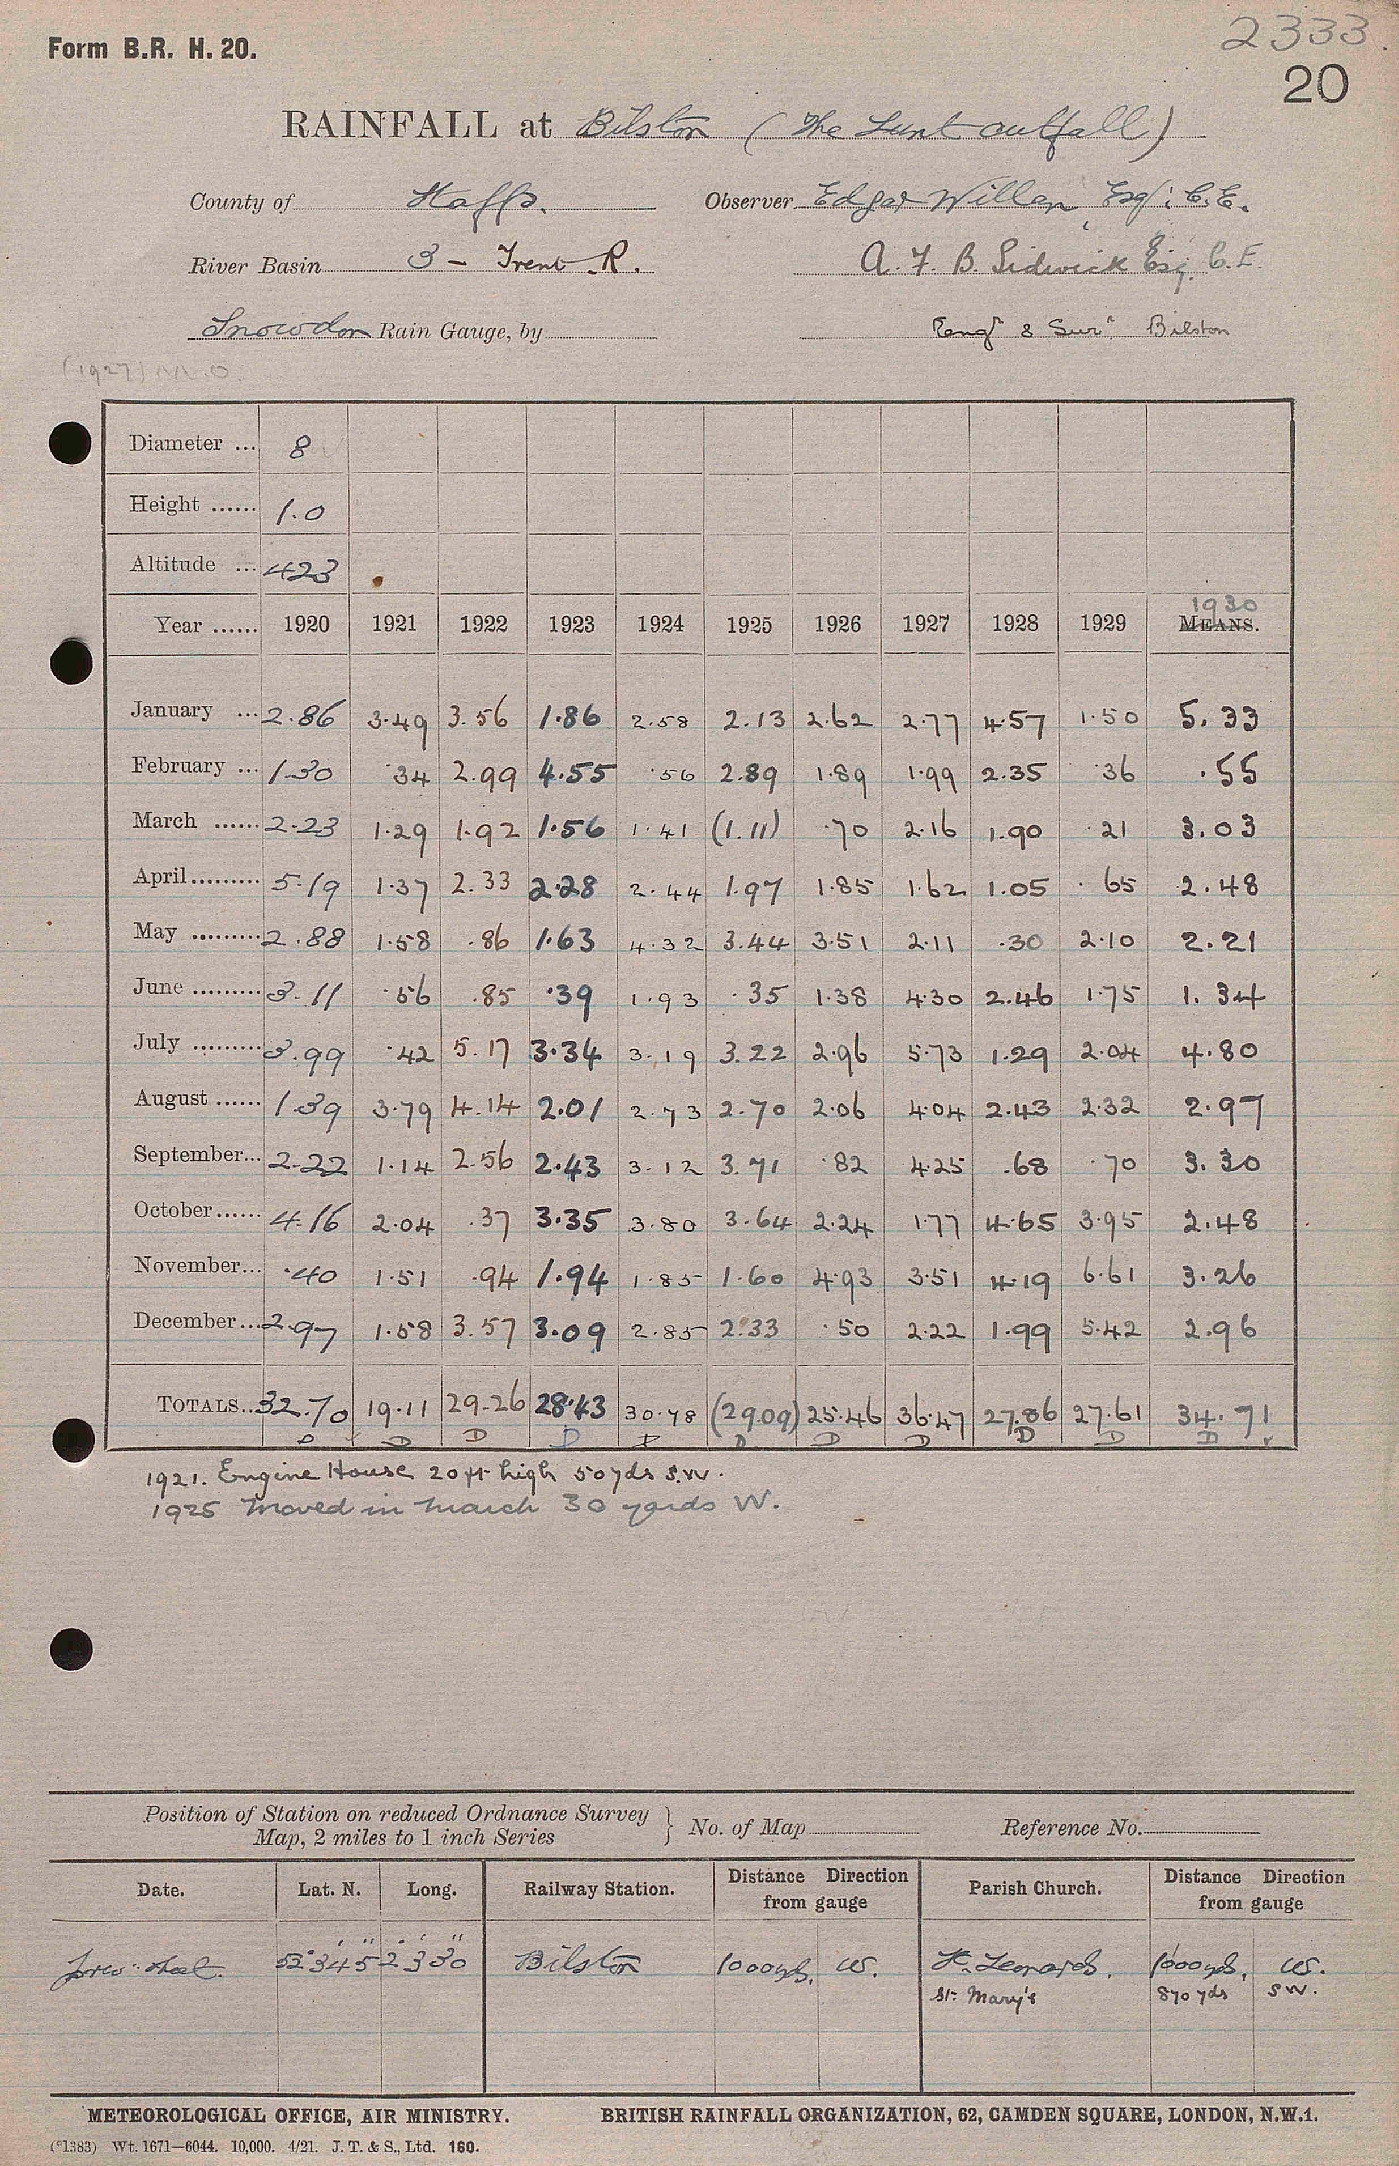 2333.
Form B.R. H. 20.
20
RAINFALL at Bilston (The Lunt outfall)
County of Staffs. Observer Edgar Willan, Esqr: C.E.
River Basin 3 - Trent R. A. F. B. Sidwick Esq. C.E.
Snowdon Rain Gauge, by Engr & Surr Bilston
(1927) M.O.
Diameter ... 8
Height ...... 1.0
Altitude ... 423
1930
Year ...... 1920 1921 1922 1923 1924 1925 1926 1927 1928 1929 MEANS.
January ... 2.86 3.49 3.56 1.86 2.58 2.13 2.62 2.77 4.57 1.50 5.33
February ... 1.30 .34 2.99 4.55 .56 2.89 1.89 1.99 2.35 .36 .55
March ...... 2.23 1.29 1.92 1.56 1.41 (1.11) .70 2.16 1.90 .21 3.03
April ......... 5.19 1.37 2.33 2.28 2.44 1.97 1.85 1.62 1.05 .65 2.48
May ......... 2.88 1.58 .86 1.63 4.32 3.44 3.51 2.11 .30 2.10 2.21
June ......... 3.11 .56 .85 .39 1.93 .35 1.38 4.30 2.46 1.75 1.34
July ......... 3.99 .42 5.17 3.34 3.19 3.22 2.96 5.73 1.29 2.04 4.80
August ...... 1.39 3.79 4.14 2.01 2.73 2.70 2.06 4.04 2.43 2.32 2.97
September... 2.22 1.14 2.56 2.43 3.12 3.71 .82 4.25 .68 .70 3.30
October ...... 4.16 2.04 .37 3.35 3.80 3.64 2.24 1.77 4.65 3.95 2.48
November... .40 1.51 .94 1.94 1.85 1.60 4.93 3.51 4.19 6.61 3.26
December ... 2.97 1.58 3.57 3.09 2.85 2.33 .50 2.22 1.99 5.42 2.96
TOTALS... 32.70 19.11 29.26 28.43 30.78 (29.09) 25.46 36.47 27.86 27.61 34.71
D D D D D D D D D D
1921. Engine House 20 ft high 50 yds S.W.
1925 Moved in March 30 yards W.
Position of Station on reduced Ordnance Survey
Map, 2 miles to 1 inch Series } No. of Map Reference No.
Date. Lat. N. Long. Railway Station. Distance Direction from gauge Parish Church. Distance Direction from gauge
prev. sheet. 52° 34' 5" 2° 3' 30" Bilston 1000 yds. W. St. Leonards. 1000 yds. W.
St. Mary's 870 yds SW.
METEOROLOGICAL OFFICE, AIR MINISTRY. BRITISH RAINFALL ORGANIZATION, 62, CAMDEN SQUARE, LONDON, N.W.1.
(*1383) Wt. 1671—6044. 10,000. 4/21. J. T. & S., Ltd. 160.